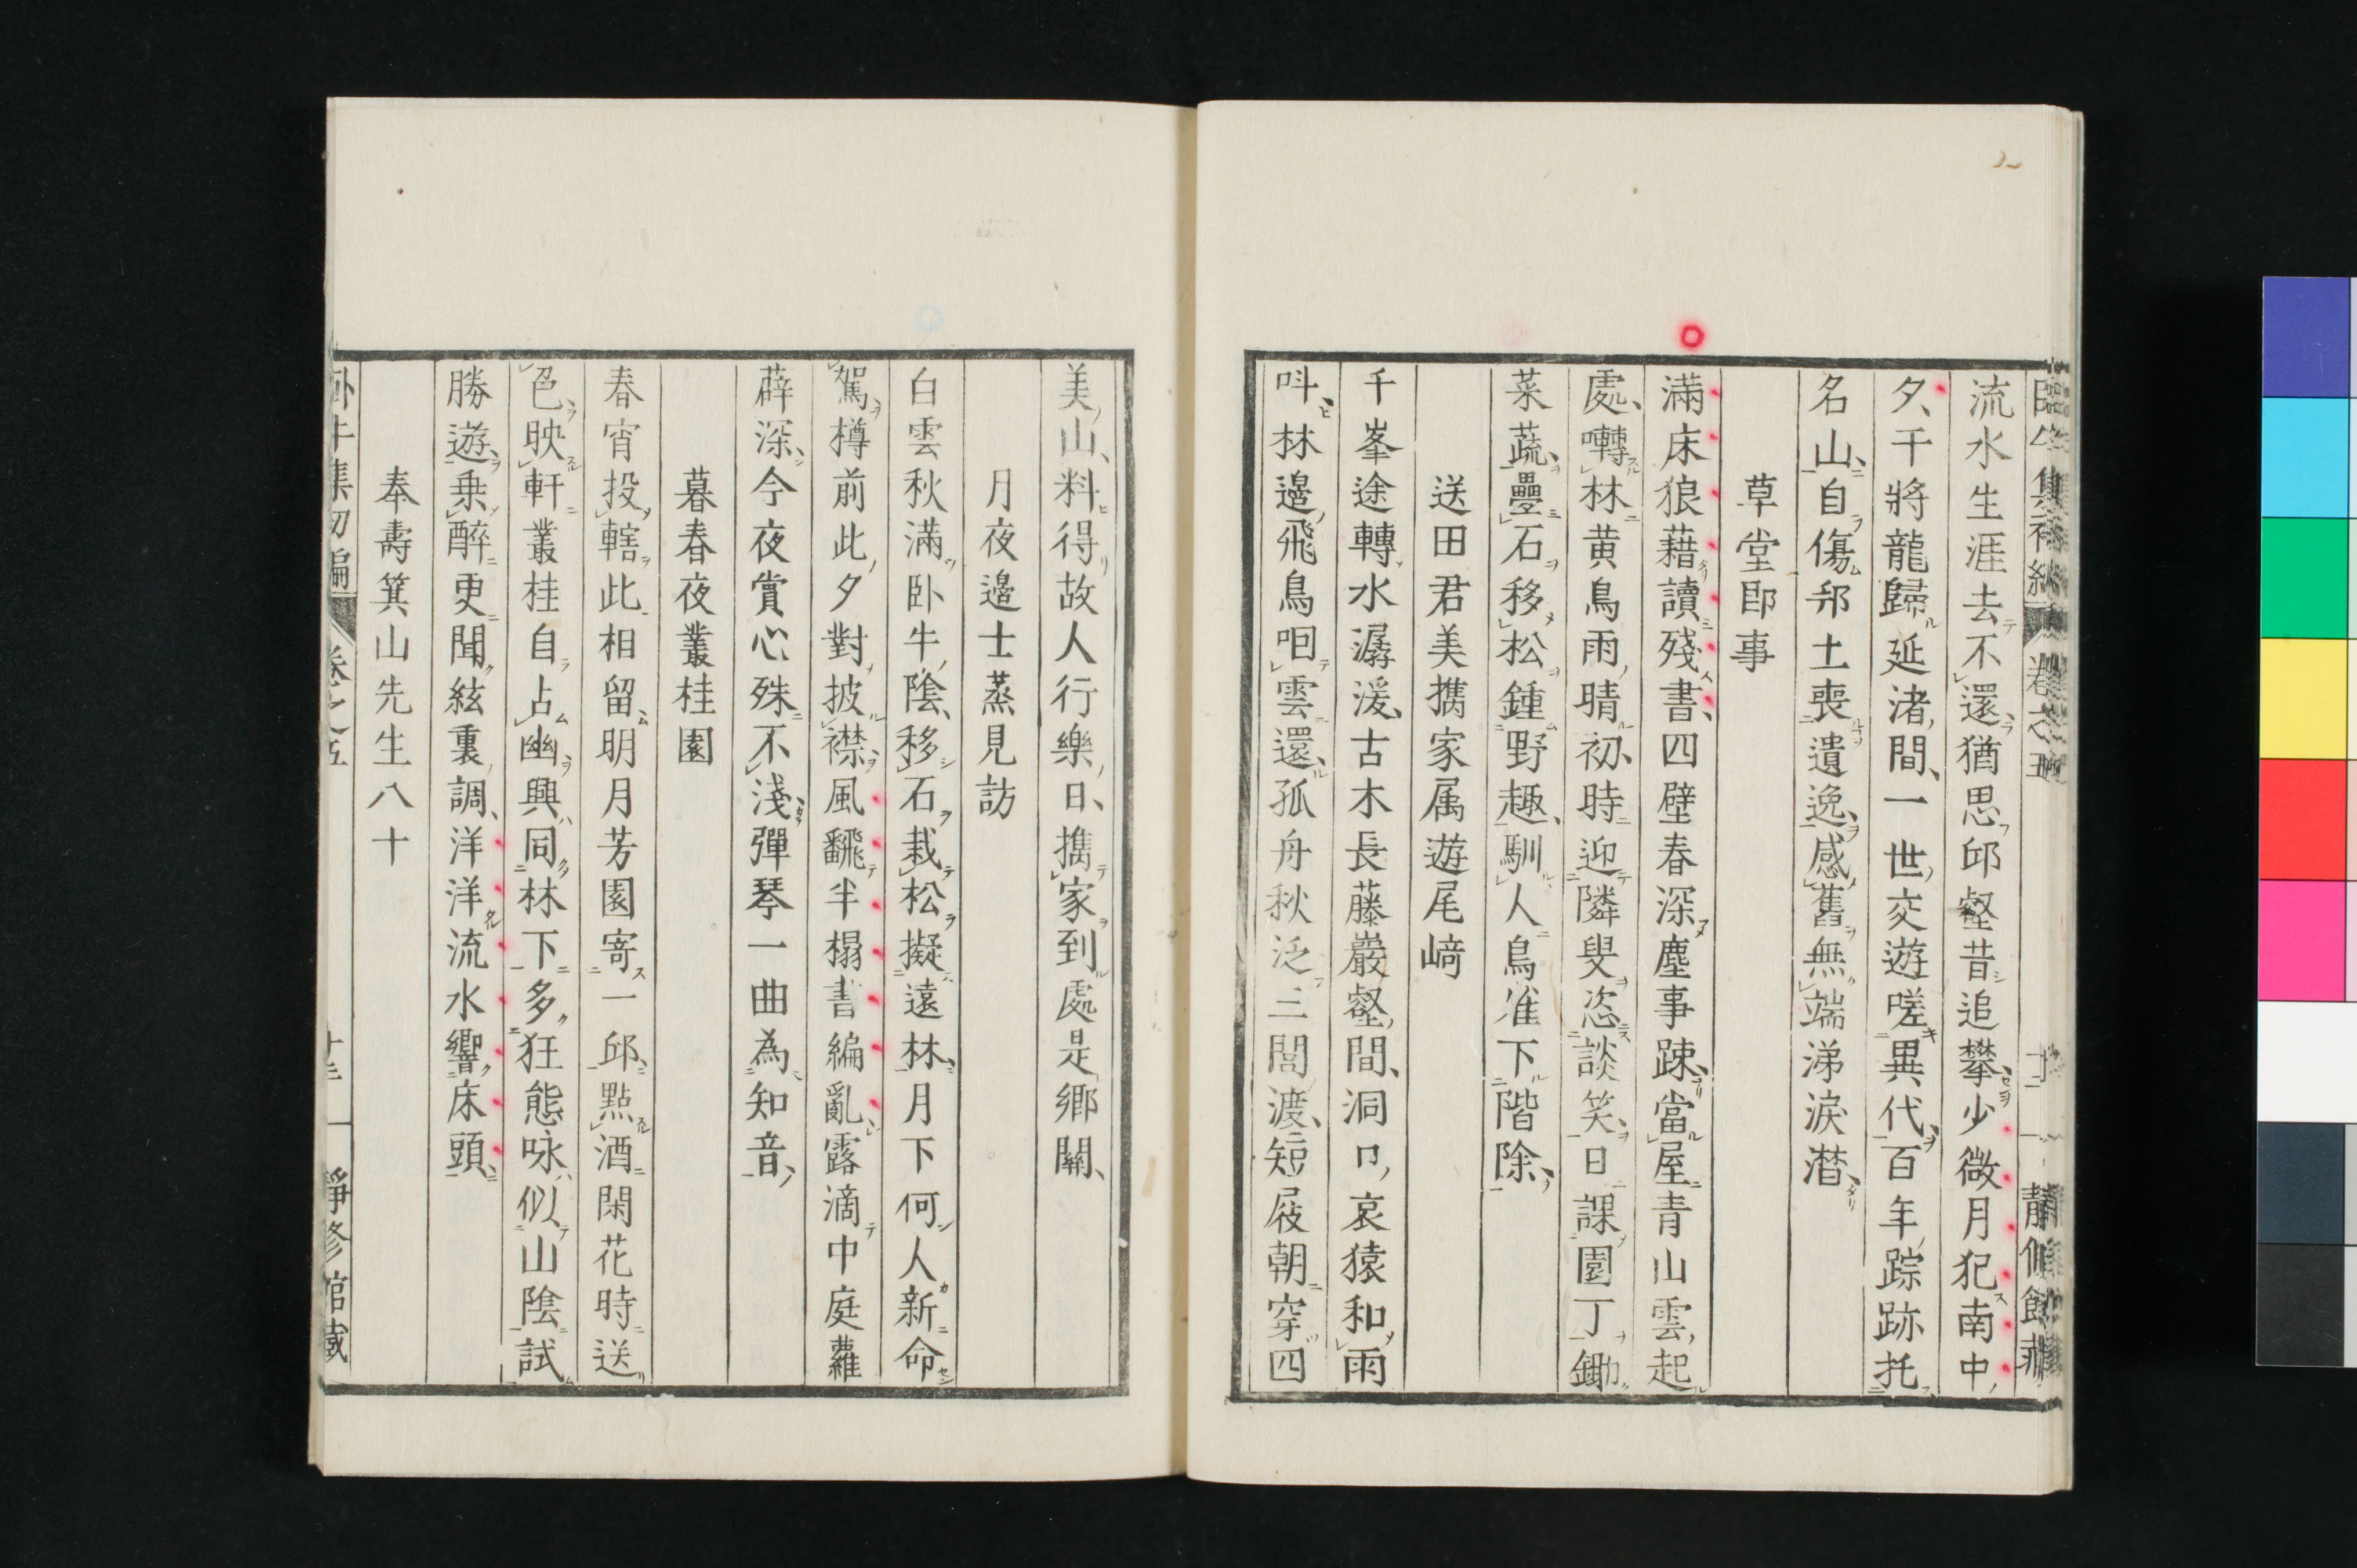 流水生涯去不還猶思邱壑昔追攀少微月犯南中
夕千將龍歸延渚間一世交遊嗟異代百年踪跡托
名山自傷邦土喪遺逸感舊無端涕淚潛
草堂即事
滿床狼藉讀殘書四壁春深塵事踈當屋青山雲起
處囀林黄鳥雨晴初時迎隣叟恣談笑日課園丁鋤
菜蔬疊石移松鍾野趣馴人鳥雀下階除
送田君美攜家属遊尾﨑
千峯途轉水潺湲古木長藤巖壑間洞口哀猿和雨
呌林邉飛鳥咀雲還孤舟秋泛三閭渡短屐朝穿四
美山料得故人行樂日攜家到處是鄉關
月夜邉士蒸見訪
白雲秋滿卧牛陰移石栽松擬遠林月下何人新命
駕樽前此夕對披襟風翻半榻書編亂露滴中庭蘿
薜深今夜賞心殊不淺彈琴一曲為知音
暮春夜叢桂園
春宵投轄此相留明月芳園寄一邱點酒閑花時送
色映軒叢桂自占幽興同林下多狂態咏似山陰試
勝遊乗醉更聞絃裏調洋洋流水響床頭
奉壽箕山先生八十
卧牛集初編 卷之五 十三 靜修館藏